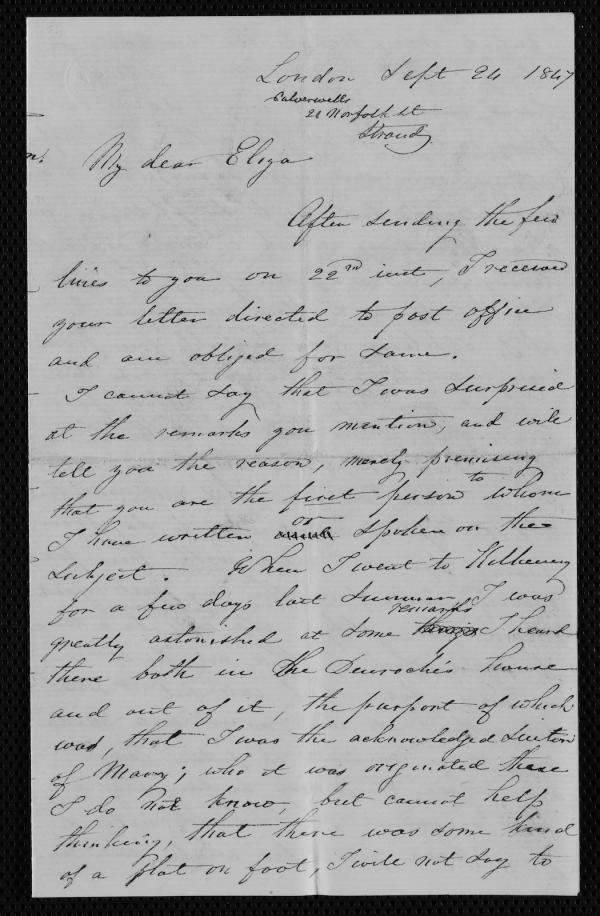 London Sept 24 1847
Calverwells
28 Norfolk st
Strand
My dear Eliza
After sending the few
lines to you on 22nd inst, I received
your letter directed to post office
and am obliged for same.
I cannot say that I was surprised
at the remarks you mention, and will
tell you the reason, merely premising
that you are the first person to whom
I have written or spoken on the
subject. When I went to Kilkenny
for a few days last Summer, I was
greatly astonished at some remarks I heard
there both in the house
and out of it, the purport of which
was, that I was the acknowledged Suitor
of Mary; who it was originated these
I do not know, but cannot help
thinking, that there was some kind
of a plot on foot, I will not say to